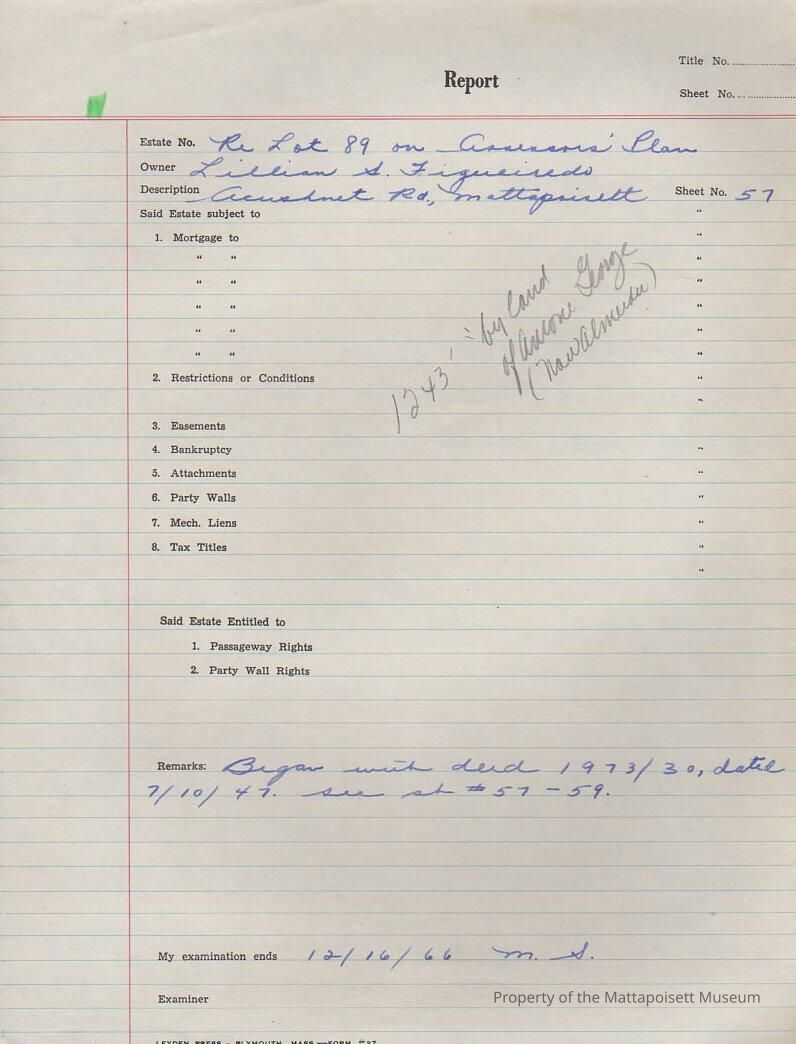 Report
Title No.
Sheet No.
Estate No. Re Lot 89 on Assessors' Plan
Owner Lillian S. Figueiredo
Description Acushnet Rd., Mattapoisett Sheet No. 57
Said Estate subject to "
1. Mortgage to "
" " "
" " "
" " "
" " "
" " "
1243' = by land
of Antone George
(now Almeida)
2. Restrictions or Conditions "
"
3. Easements
4. Bankruptcy "
5. Attachments "
6. Party Walls "
7. Mech. Liens "
8. Tax Titles "
"
Said Estate Entitled to
1. Passageway Rights
2. Party Wall Rights
Remarks: Began with deed 1973/30, dated
7/10/47. see sh #57-59.
My examination ends 12/16/66 M. S.
Examiner
Property of the Mattapoisett Museum
LEYDEN PRESS - PLYMOUTH, MASS.—FORM #27